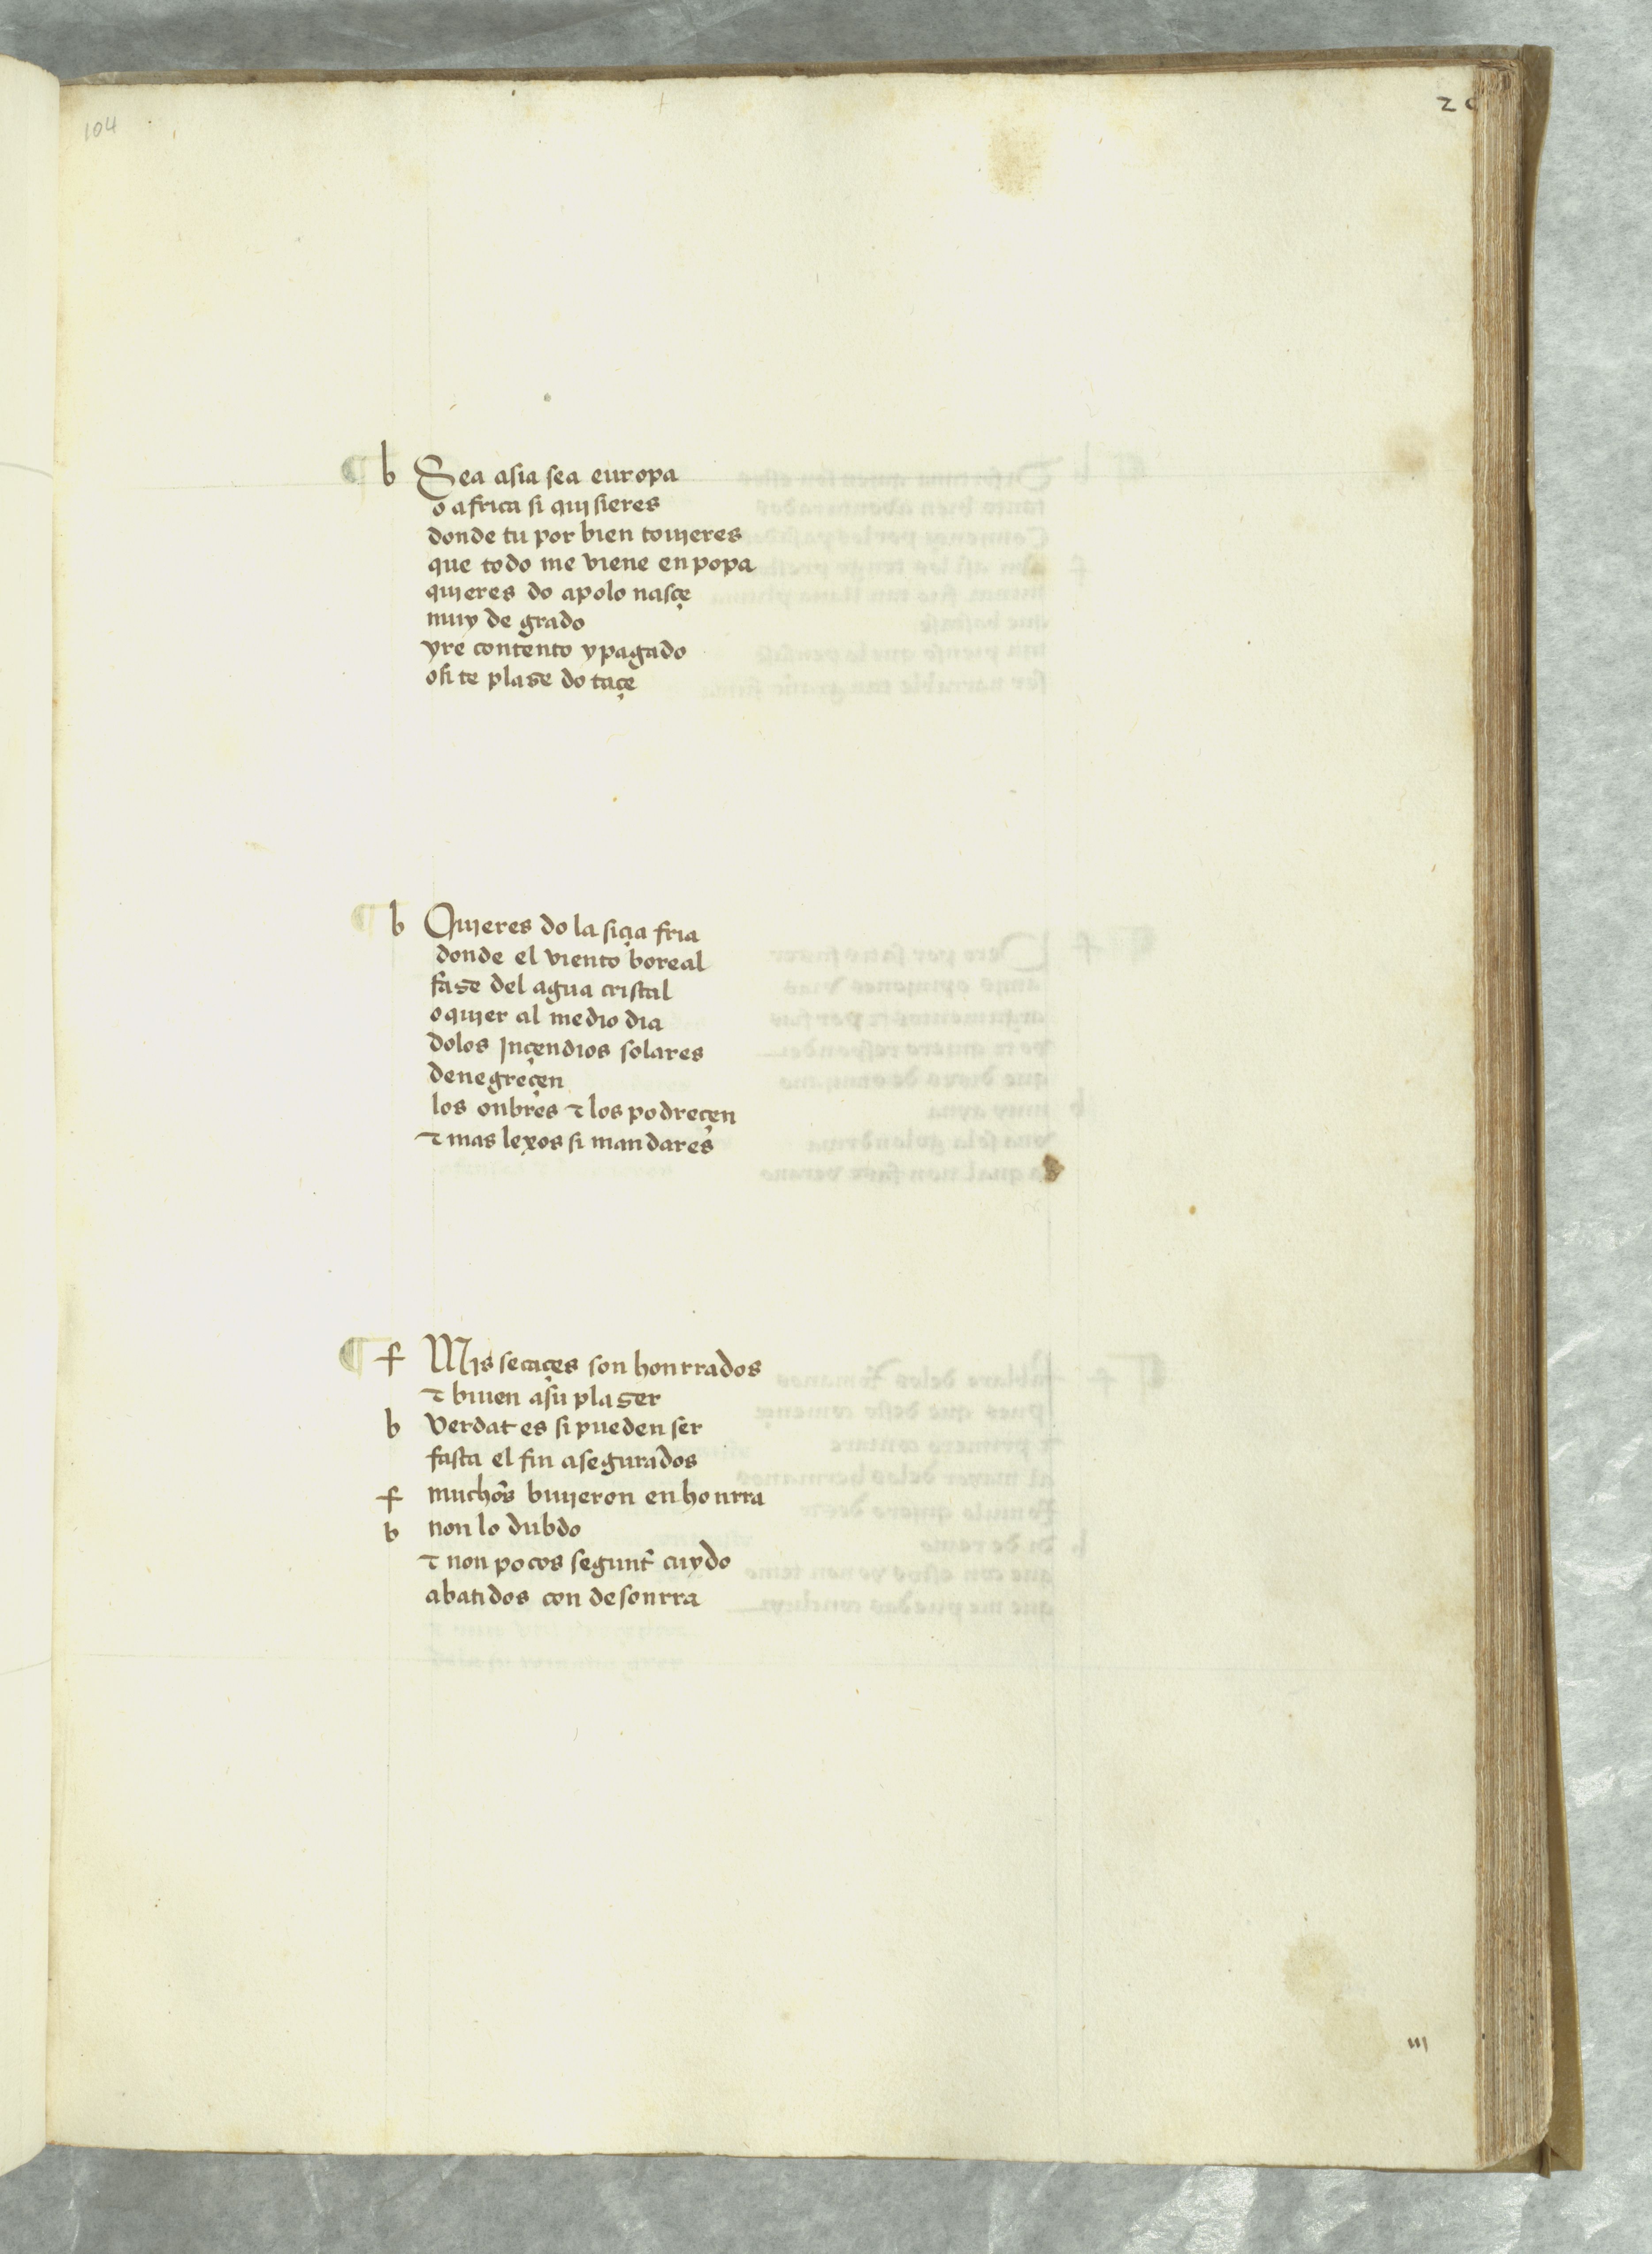 104
¶ b Sea asia sea europa
o africa si quisieres
donde tu por bien touieres
que todo me viene en popa
quieres do apolo nasçe
muy de grado
yre contento y pagado
o si te plase do taçe
¶ b Quieres do la siçia fria
donde el viento boreal
fase del agua cristal
o quier al medio dia
dolos Inçendios solares
denegreçen
los onbres τ los podreçen
τ mas lexos si mandares
¶ f Mis secaçes son honrrados
τ biuen asu plaser
b verdat es si pueden ser
fasta el fin asegurados
f muchos biuieron en honrra
b non lo dubdo
τ non pocos segunt cuydo
abatidos con desonrra
iij